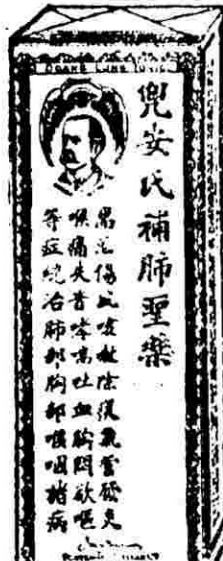 DOANS LUNG TONIC
兜安氏補肺聖藥
專治傷風咳嗽除痰
喉痛失音哮喘吐血胸悶欲嘔
等症統治肺部胸部喉咽諸病